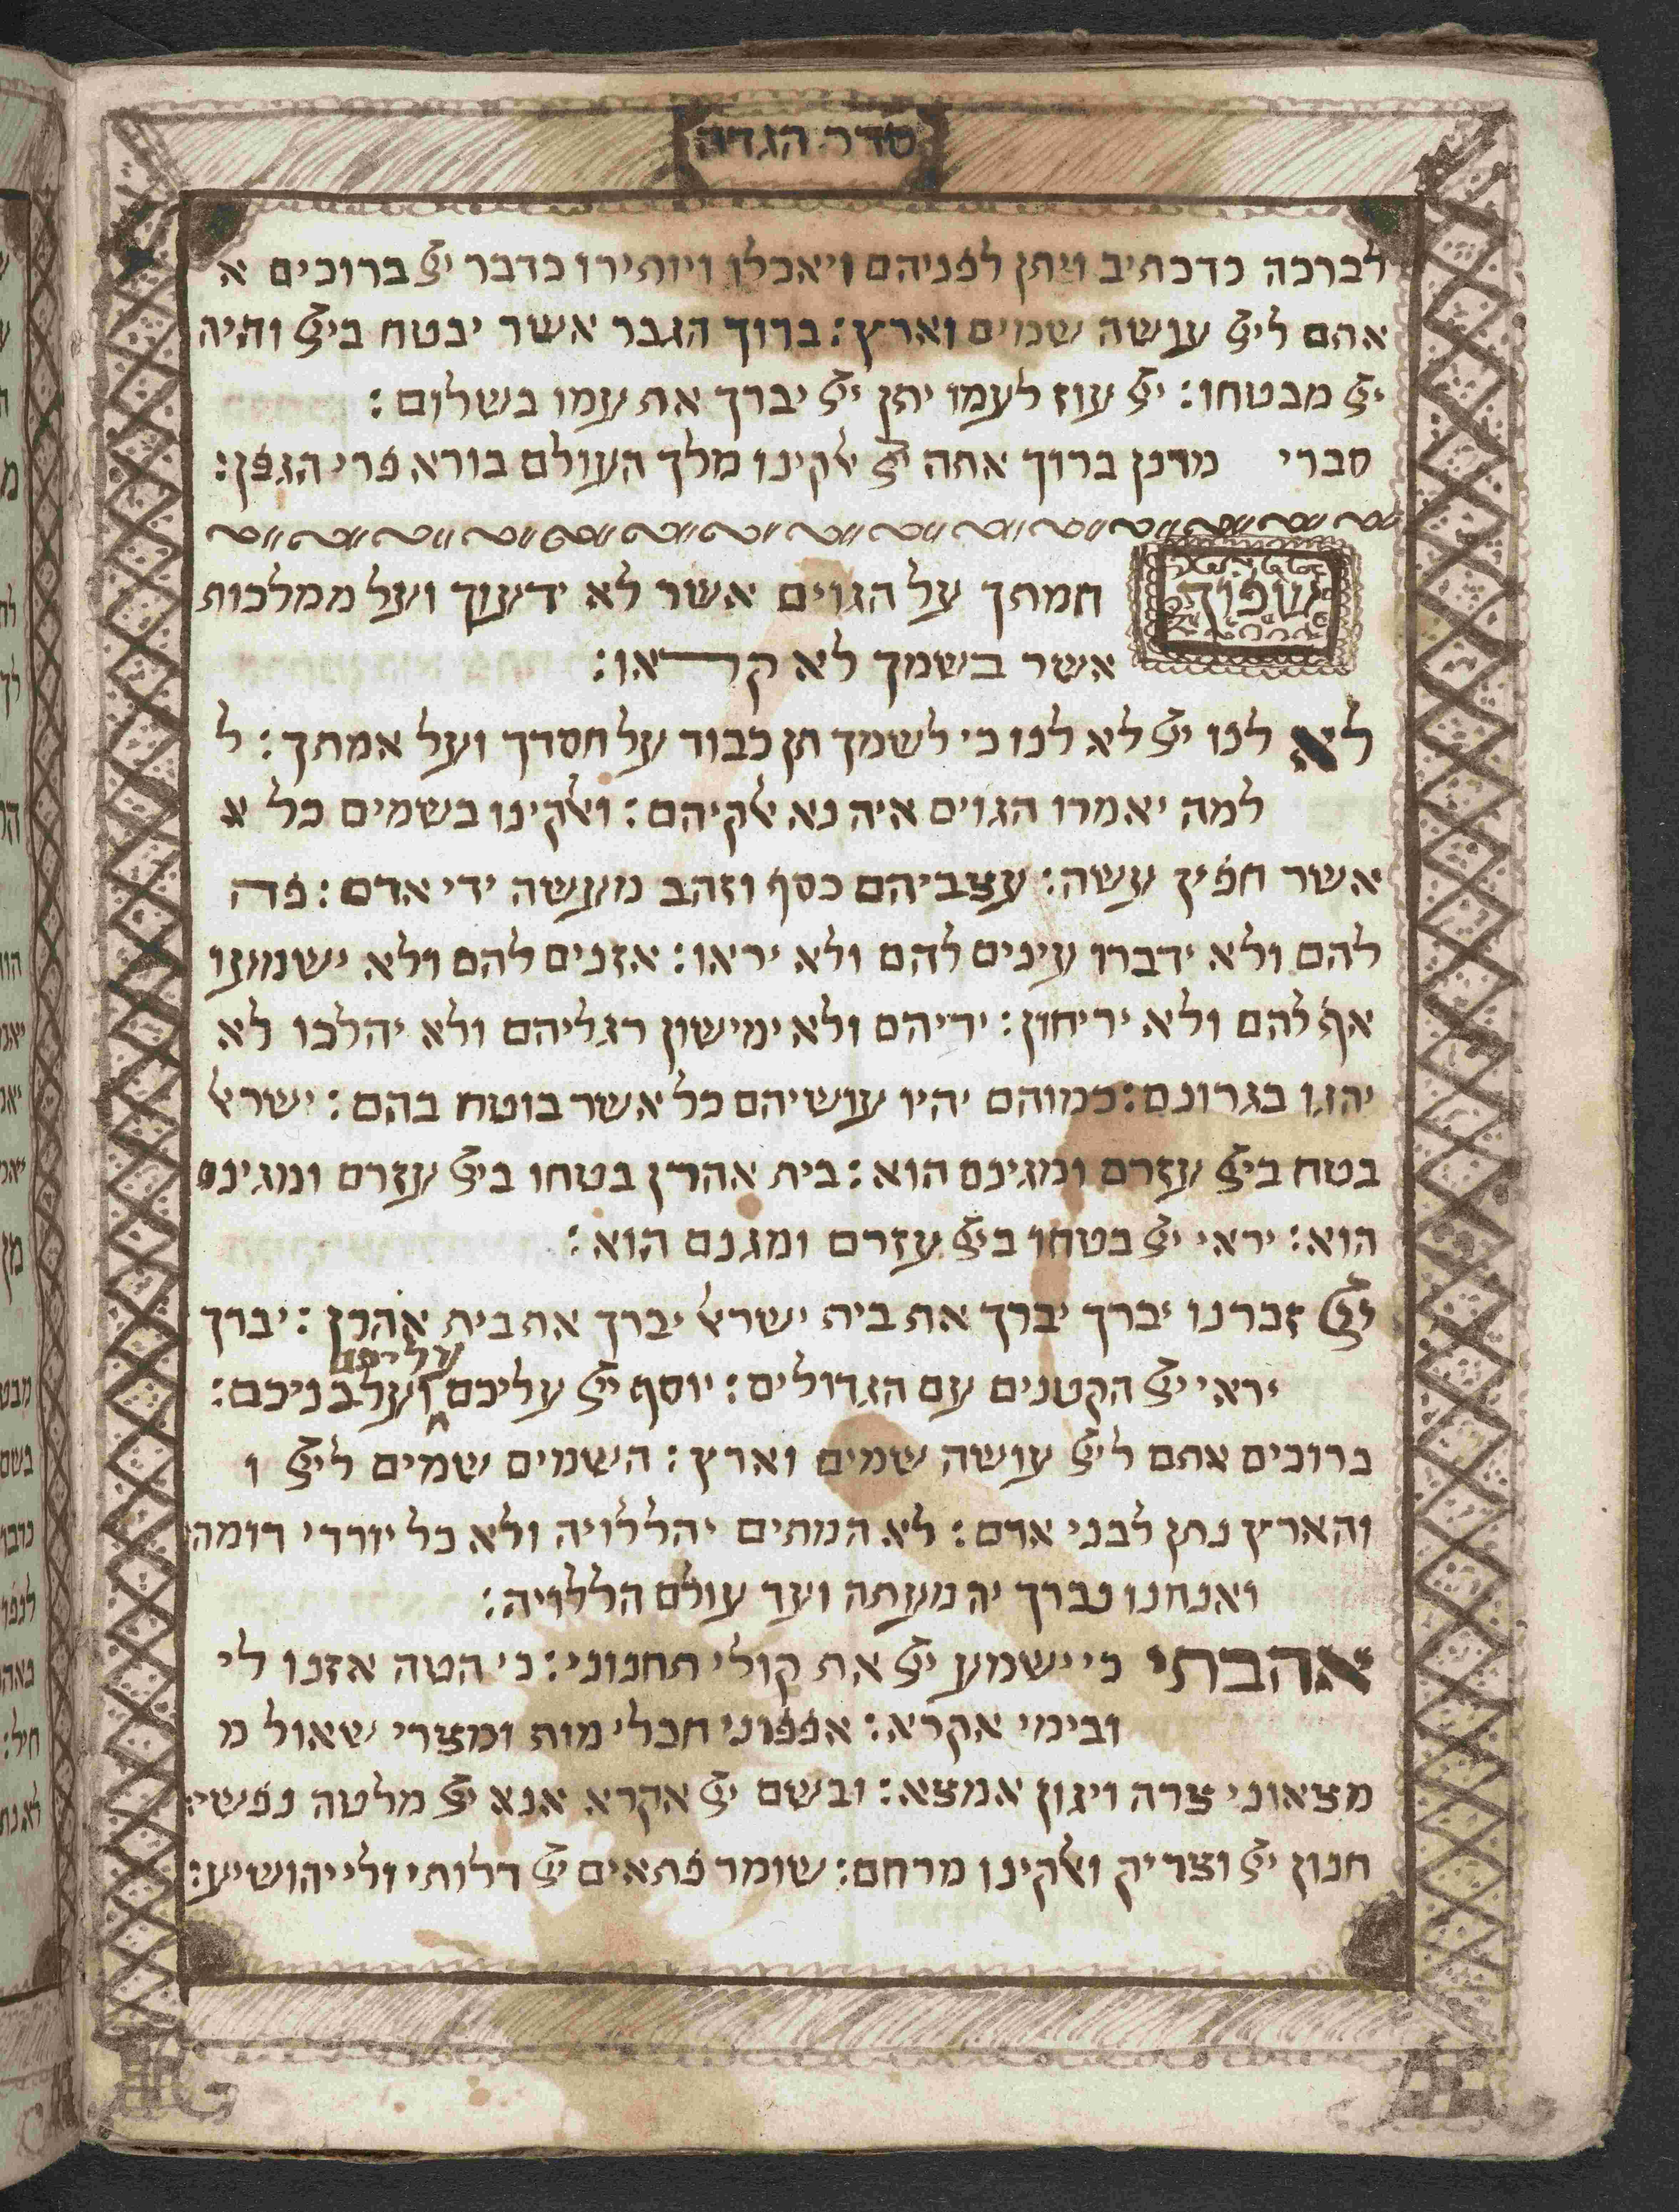 סדר הגדה
לברכה כדכתיב ויתן לפניהם ויאכלו ויותירו כדבר יי ברוכים א
אתם ליי עושה שמים וארץ: ברוך הגבר אשר יבטח ביי והיה
יי מבטחו: יי עוז לעמו יתן יי יברך את עמו בשלום:
סברי מרנן ברוך אתה יי אלקינו מלך העולם בורא פרי הגפן:
שפוך חמתך על הגוים אשר לא ידעוך ועל ממלכות
אשר בשמך לא קראו:
לא לנו יי לא לנו כי לשמך תן כבוד על חסדך ועל אמתך: ל
למה יאמרו הגוים איה נא אלקיהם: ואלקינו בשמים כל א
אשר חפיץ עשה: עצביהם כסף וזהב מעשה ידי אדם: פה
להם ולא ידברו עינים להם ולא יראו: אזנים להם ולא ישמעו
אף להם ולא יריחון: ידיהם ולא ימישון רגליהם ולא יהלכו לא
יהגו בגרונם: כמוהם יהיו עושיהם כל אשר בוטח בהם: ישראל
בטח ביי עזרם ומגינם הוא: בית אהרן בטחו ביי עזרם ומגינם
הוא: יראי יי בטחו ביי עזרם ומגנם הוא:
יי זכרנו יברך יברך את בית ישראל יברך את בית אהרן: יברך
עליכם
יראי יי הקטנים עם הגדולים: יוסף יי עליכם ועל בניכם:
ברוכים אתם ליי עושה שמים וארץ: השמים שמים ליי ו
והארץ נתן לבני אדם: לא המתים יהללויה ולא כל יורדי דומה
ואנחנו נברך יה מעתה ועד עולם הללויה:
אהבתי כי ישמע יי את קולי תחנוני: כי הטה אזנו לי
ובימי אקרא: אפפוני חבלי מות ומצרי שאול מ
מצאוני צרה ויגון אמצא: ובשם יי אקרא אנא יי מלטה נפשי:
חנון יי וצדיק ואלקינו מרחם: שומר פתאים יי דלותי ולי יהושיע: